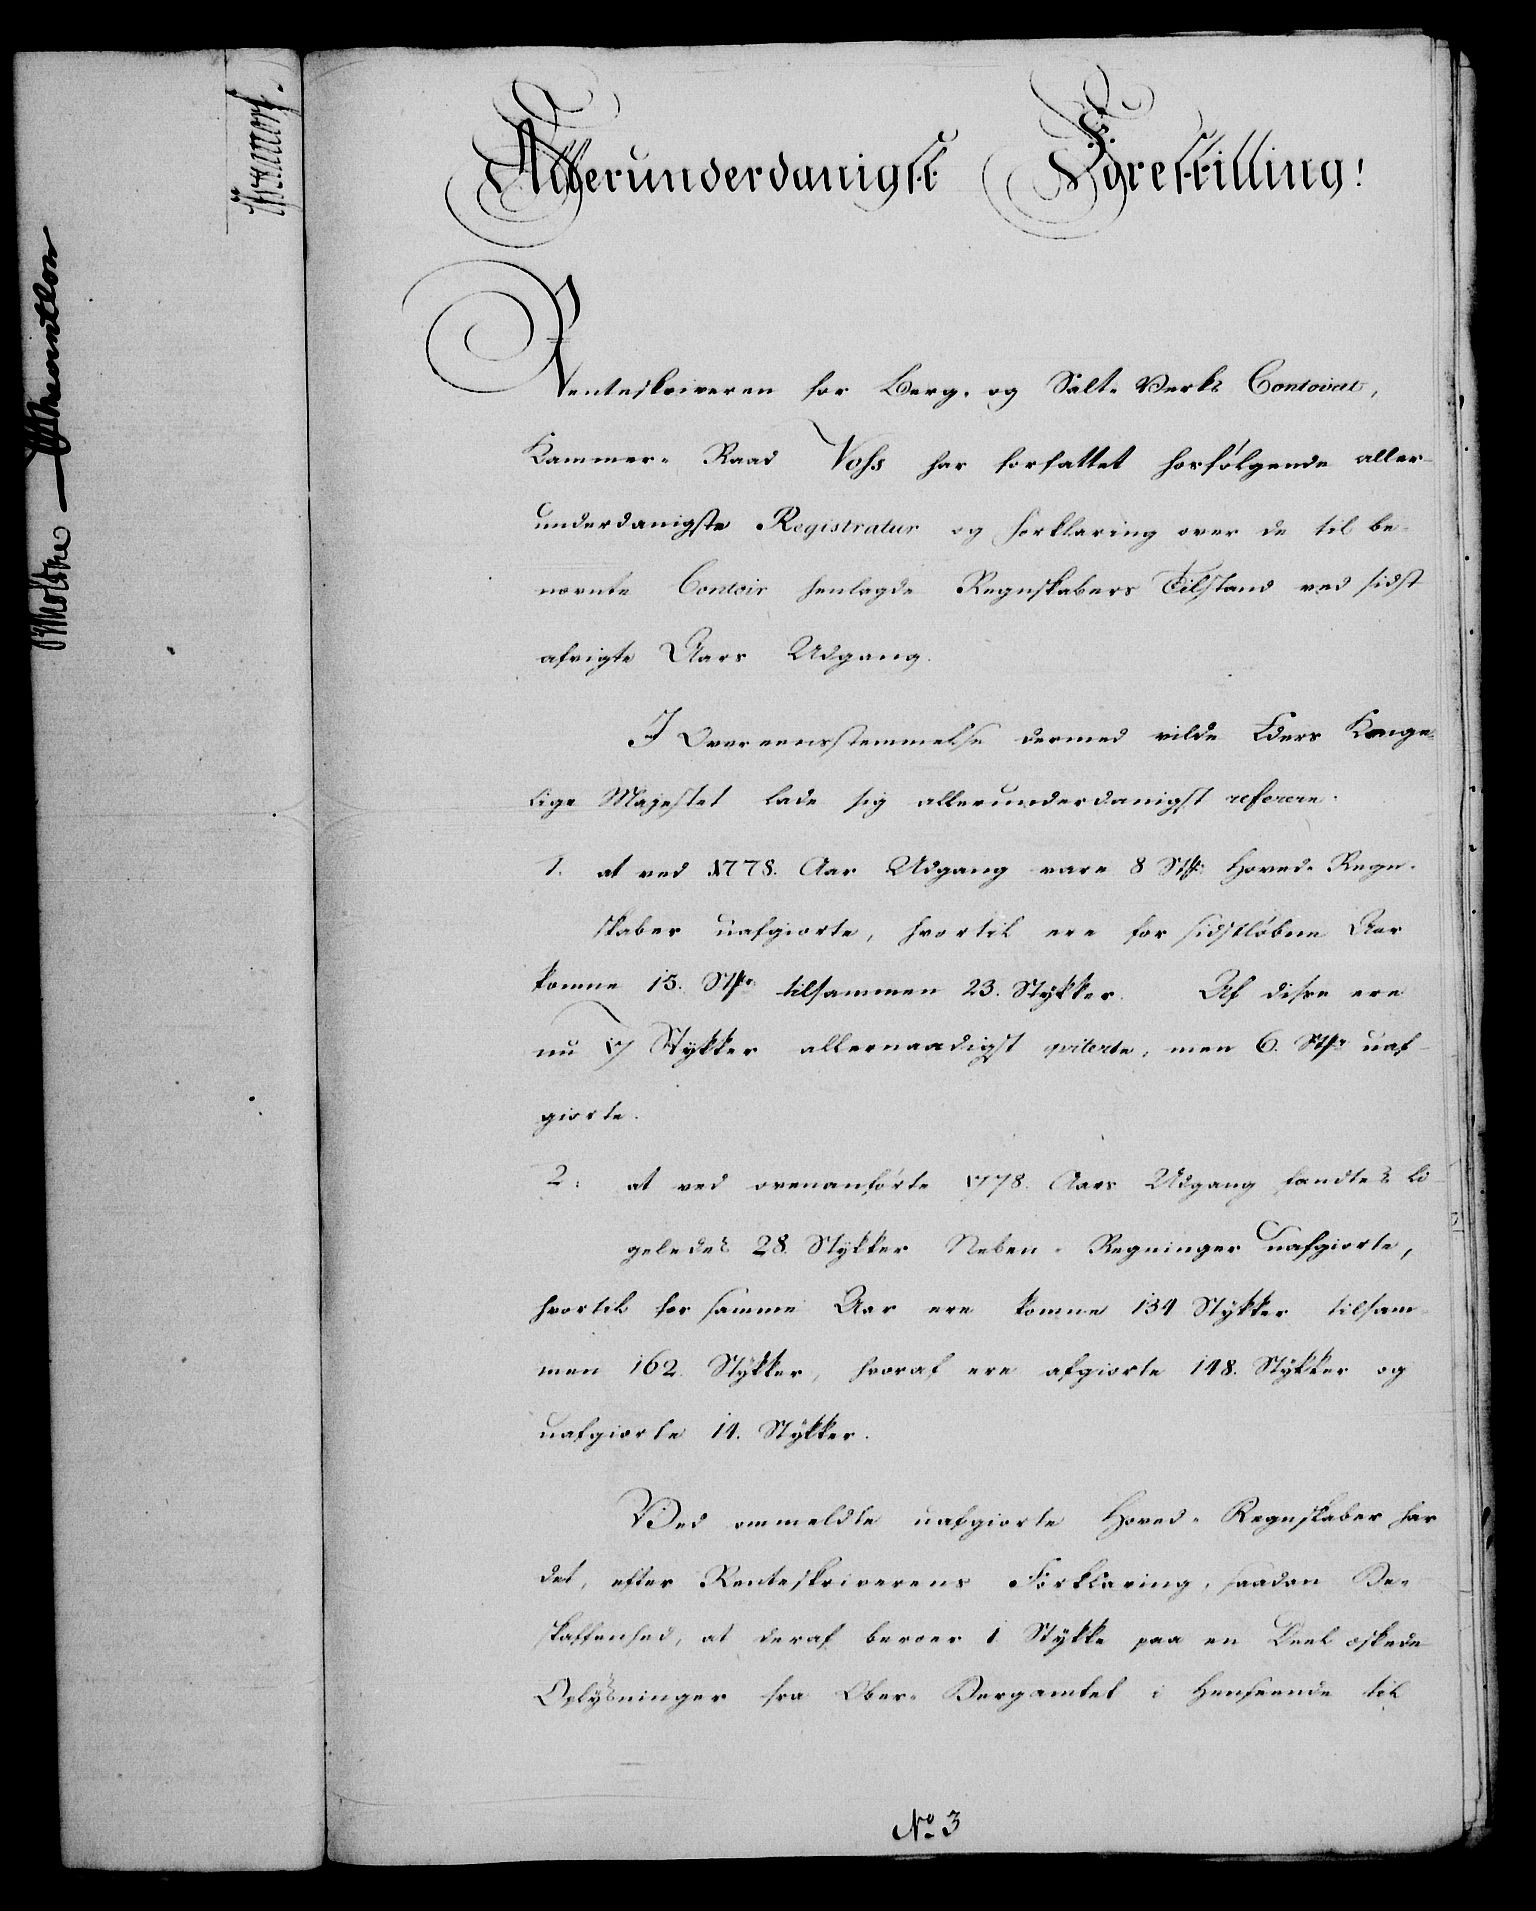 Allerunderdanigst Forestilling!
Renteskriveren for Berg- og Salt-Verks Contoiret,
Kammer-Raad Voss har forfattet hosfølgende aller-
underdanigste Registratur og Forklaring over de til be-
nevnte Contoir henlagde Regnskabers Tilstand ved sidst
afvigte Aars Udgang.
I Overeensstemmelse dermed vilde Eders Konge-
lige Majestet lade sig allerunderdanigst referere.
1. at ved 1778. Aar Udgang vare 8 Stkr Hoved-Regn-
skaber uafgiorte, hvortil ere for sidstløbne Aar
komne 15. Stkr tilsammen 23. Stykker. Af disse ere
nu 17 Stykker allernaadigst qviterte, men 6. Stkr uaf-
giorte.
2. at ved ovenanførte 1778. Aars Udgang fandtes li-
geledes 28. Stykker Neben-Regninger uafgiorte,
hvortil for samme Aar ere komne 134 Stykker tilsam-
men 162. Stykker, hvoraf ere afgiorte 148. Stykker og
uafgiorte 14. Stykker.
Med ommeldte uafgiorte Hoved-Regnskaber har
det, efter Renteskriverens Forklaring, saadan Be-
skaffenhed, at deraf beroer 1 Stykke paa en Deel æskede
Oplysninger fra Ober-Bergamtet i Henseende til
No 3